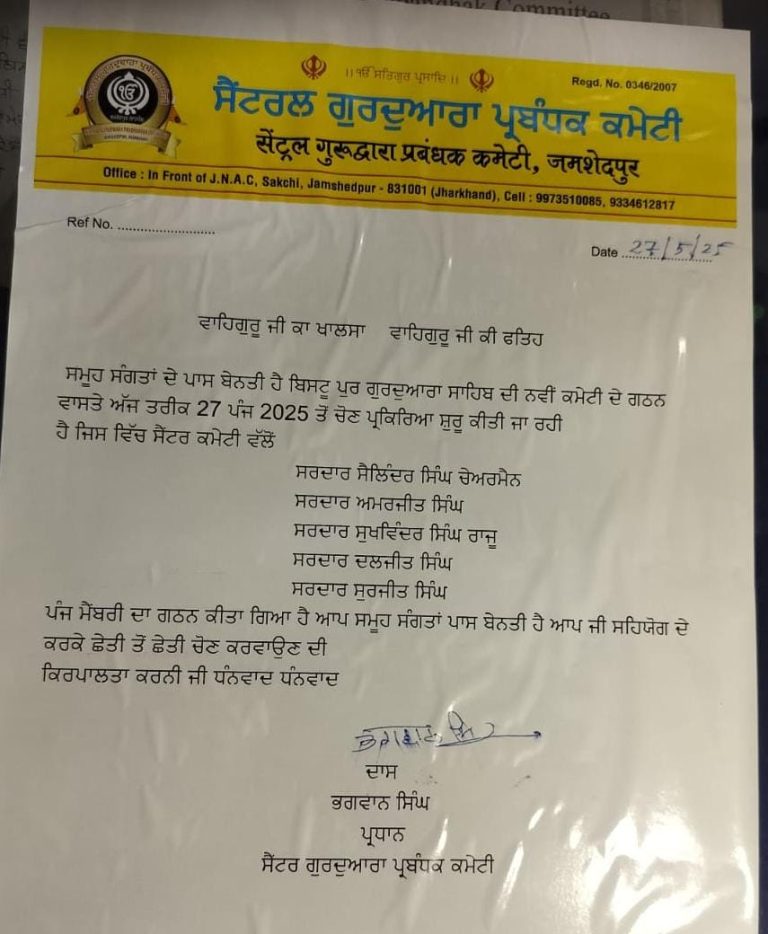 ndhak Committee
।।ੴ ਸਤਿਗੁਰ ਪ੍ਰਸਾਦਿ ।।
Regd. No. 0346/2007
ਸੈਂਟਰਲ ਗੁਰਦੁਆਰਾ ਪ੍ਰਬੰਧਕ ਕਮੇਟੀ
सेंट्रल गुरूद्वारा प्रबंधक कमेटी, जमशेदपुर
Office : In Front of J.N.A.C, Sakchi, Jamshedpur - 831001 (Jharkhand), Cell : 9973510085, 9334612817
Ref No. ..........................
Date 27/5/25
ਵਾਹਿਗੁਰੂ ਜੀ ਕਾ ਖਾਲਸਾ ਵਾਹਿਗੁਰੂ ਜੀ ਕੀ ਫਤਿਹ
ਸਮੂਹ ਸੰਗਤਾਂ ਦੇ ਪਾਸ ਬੇਨਤੀ ਹੈ ਬਿਸਟੂ ਪੁਰ ਗੁਰਦੁਆਰਾ ਸਾਹਿਬ ਦੀ ਨਵੀਂ ਕਮੇਟੀ ਦੇ ਗਠਨ
ਵਾਸਤੇ ਅੱਜ ਤਰੀਕ 27 ਪੰਜ 2025 ਤੋਂ ਚੋਣ ਪ੍ਰਕਿਰਿਆ ਸ਼ੁਰੂ ਕੀਤੀ ਜਾ ਰਹੀ
ਹੈ ਜਿਸ ਵਿੱਚ ਸੈਂਟਰ ਕਮੇਟੀ ਵੱਲੋਂ
ਸਰਦਾਰ ਸੈਲਿੰਦਰ ਸਿੰਘ ਚੇਅਰਮੈਨ
ਸਰਦਾਰ ਅਮਰਜੀਤ ਸਿੰਘ
ਸਰਦਾਰ ਸੁਖਵਿੰਦਰ ਸਿੰਘ ਰਾਜੂ
ਸਰਦਾਰ ਦਲਜੀਤ ਸਿੰਘ
ਸਰਦਾਰ ਸੁਰਜੀਤ ਸਿੰਘ
ਪੰਜ ਮੈਂਬਰੀ ਦਾ ਗਠਨ ਕੀਤਾ ਗਿਆ ਹੈ ਆਪ ਸਮੂਹ ਸੰਗਤਾਂ ਪਾਸ ਬੇਨਤੀ ਹੈ ਆਪ ਜੀ ਸਹਿਯੋਗ ਦੇ
ਕਰਕੇ ਛੇਤੀ ਤੋਂ ਛੇਤੀ ਚੋਣ ਕਰਵਾਉਣ ਦੀ
ਕਿਰਪਾਲਤਾ ਕਰਨੀ ਜੀ ਧੰਨਵਾਦ ਧੰਨਵਾਦ
ਦਾਸ
ਭਗਵਾਨ ਸਿੰਘ
ਪ੍ਰਧਾਨ
ਸੈਂਟਰ ਗੁਰਦੁਆਰਾ ਪ੍ਰਬੰਧਕ ਕਮੇਟੀ